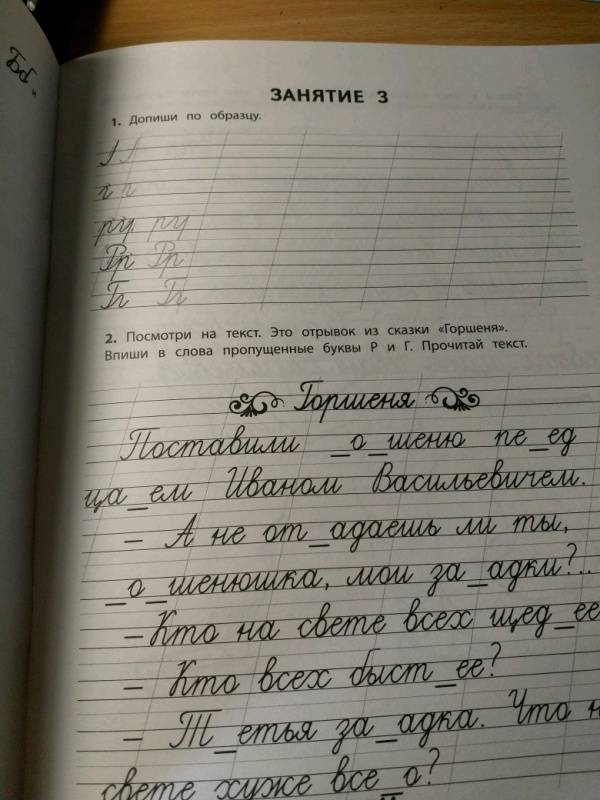 Бб
ЗАНЯТИЕ 3
1. Допиши по образцу.
г г
ру ру
Рр Рр
Гг Гг
2. Посмотри на текст. Это отрывок из сказки «Горшеня».
Впиши в слова пропущенные буквы Р и Г. Прочитай текст.
Горшеня
Поставили _о_шеню пе_ед
ца_ем Иваном Васильевичем.
– А не от_адаешь ли ты,
_о_шенюшка, мои за_адки?..
– Кто на свете всех щед_ее
– Кто всех быст_ее?
– Т_етья за_адка. Что н
свете хуже все_о?